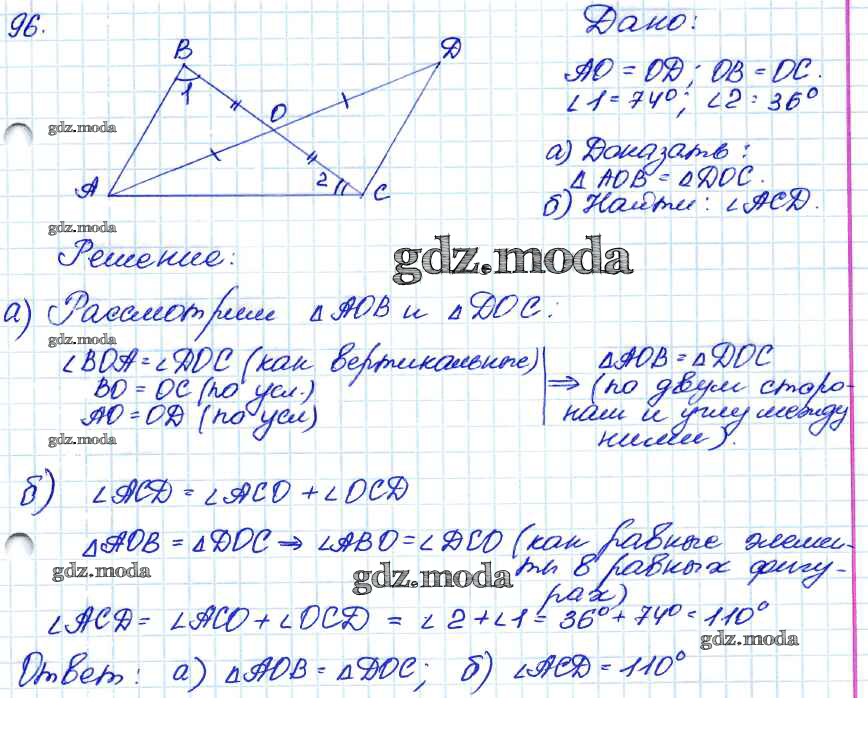 96.
Дано:
B
D
1
O
A
2
C
AO = OD; OB = OC.
∠1 = 74°; ∠2 = 36°
gdz.moda
а) Доказать:
△AOB = △DOC.
б) Найти: ∠ACD.
gdz.moda
Решение:
gdz.moda
а) Рассмотрим △AOB и △DOC:
gdz.moda
∠BOA = ∠DOC (как вертикальные)
BO = OC (по усл.)
AO = OD (по усл)
⇒
△AOB = △DOC
(по двум сторо-
нам и углу между
ними).
gdz.moda
б) ∠ACD = ∠ACO + ∠OCD
△AOB = △DOC ⇒ ∠ABO = ∠DCO (как равные элемен-
ты в равных фигу-
рах)
gdz.moda
gdz.moda
∠ACD = ∠ACO + ∠OCD = ∠2 + ∠1 = 36° + 74° = 110°
gdz.moda
Ответ: а) △AOB = △DOC; б) ∠ACD = 110°